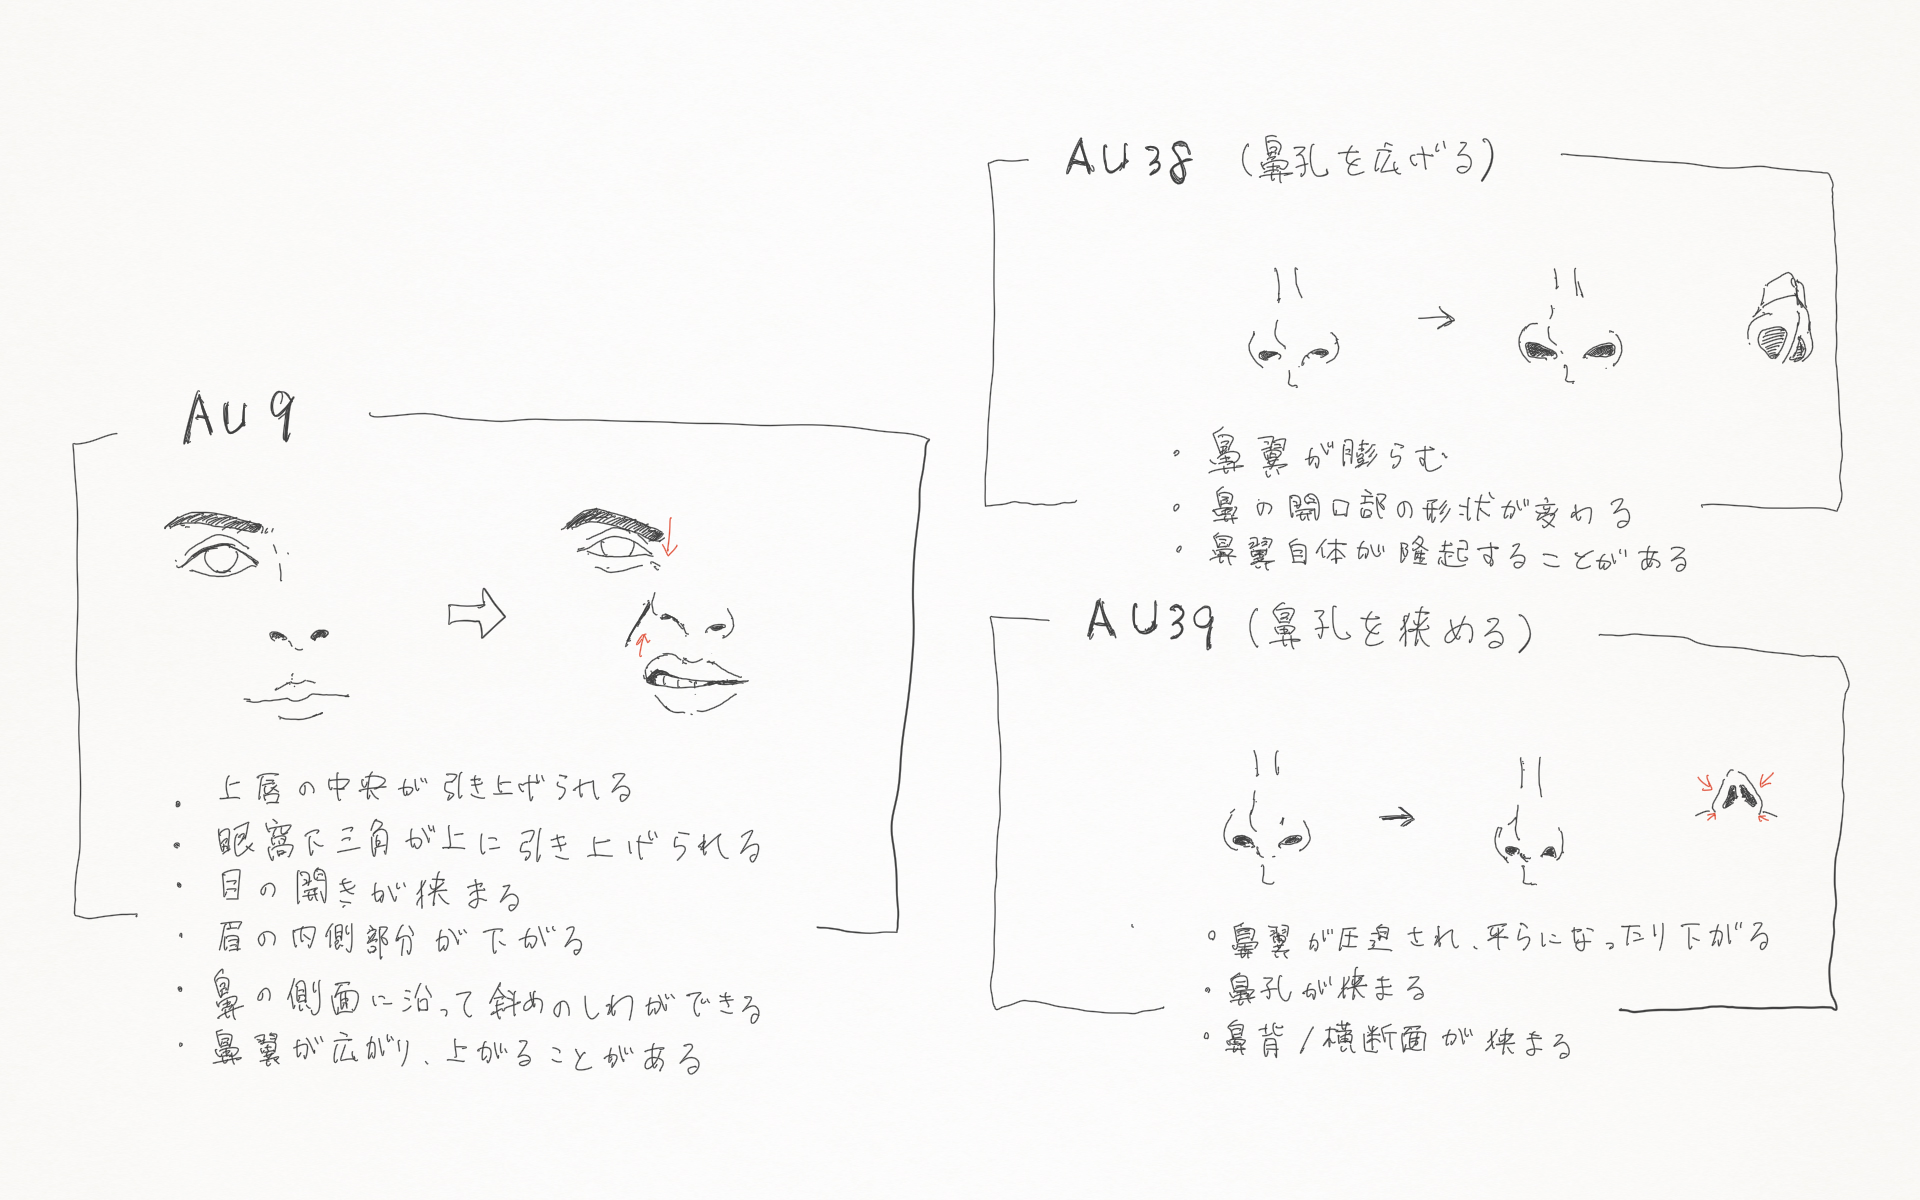 AU 9
・上唇の中央が引き上げられる
・眼窩下三角が上に引き上げられる
・目の開きが狭まる
・眉の内側部分が下がる
・鼻の側面に沿って斜めのしわができる
・鼻翼が広がり、上がることがある
AU38 (鼻孔を広げる)
・鼻翼が膨らむ
・鼻の開口部の形状が変わる
・鼻翼自体が隆起することがある
AU39 (鼻孔を狭める)
・鼻翼が圧迫され、平らになったり下がる
・鼻孔が狭まる
・鼻背/横断面が狭まる